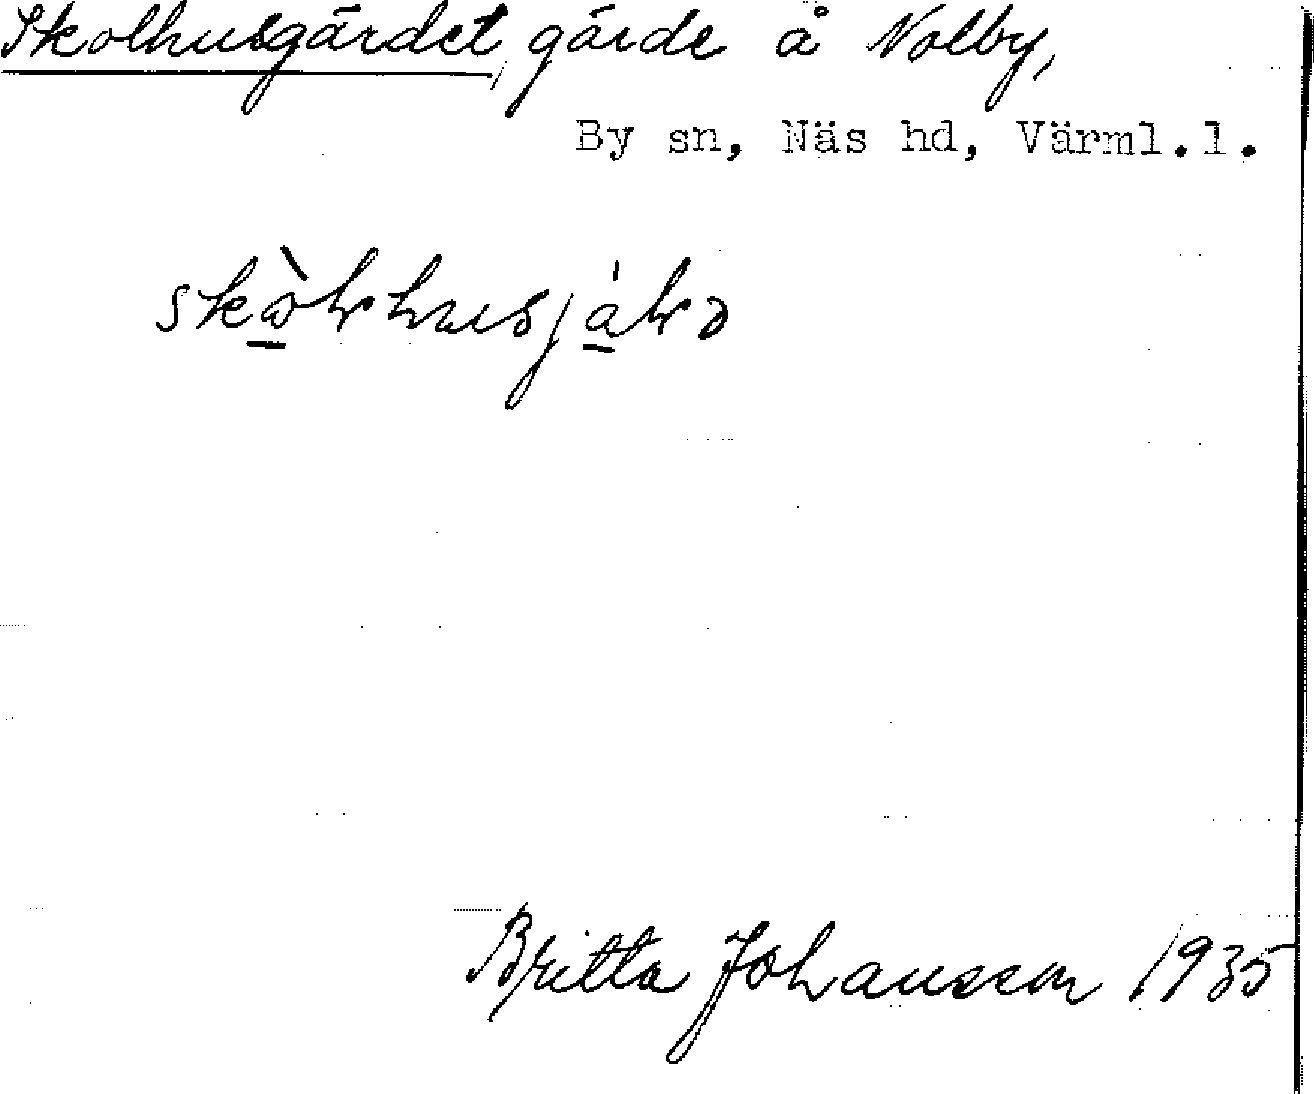 Skolhusgärdet, gärde å Nolby,
By sn, Näs hd, Värml.l.
Britta Johansson 1935